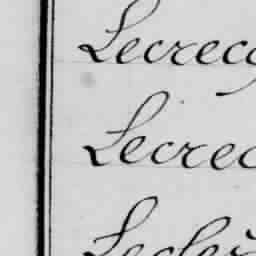 Lecrecy
Lecrec
Lecler